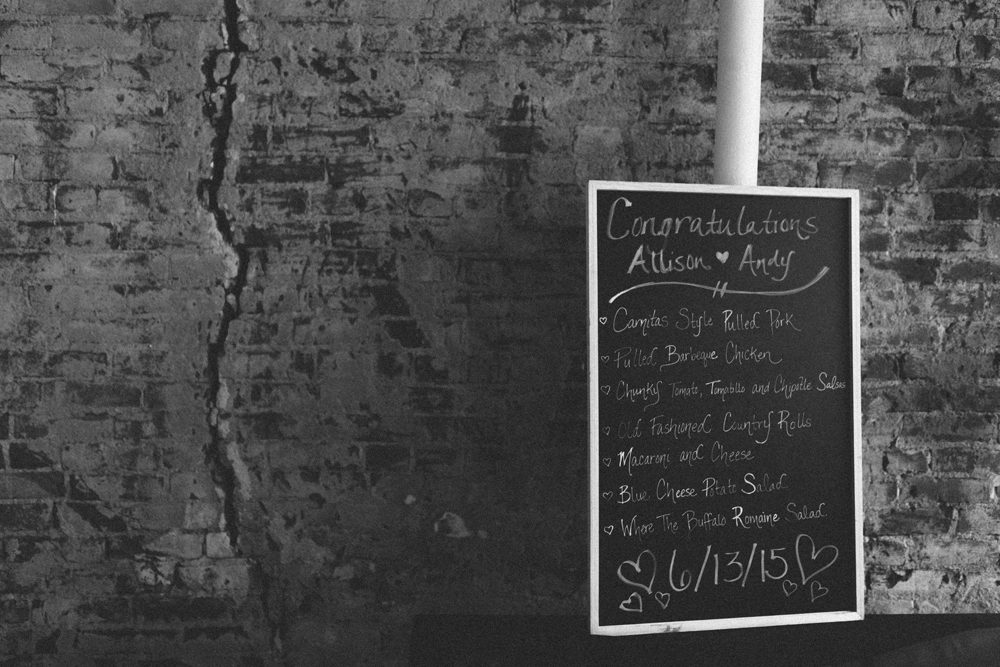 Congratulations
Allison ♥ Andy
♡ Carnitas Style Pulled Pork
♡ Pulled Barbeque Chicken
♡ Chunky Tomato, Tomatillo and Chipotle Salsas
♡ Old Fashioned Country Rolls
♡ Macaroni and Cheese
♡ Blue Cheese Potato Salad
♡ Where The Buffalo Romaine Salad
6/13/15